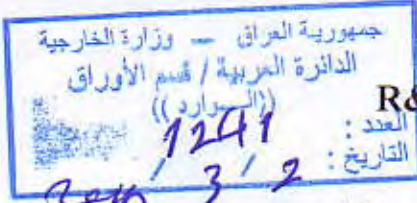 جمهورية العراق — وزارة الخارجية
الدائرة العربية / قسم الأوراق
((الواردة))
R&
العدد : 1241
التاريخ : 2 / 3 /